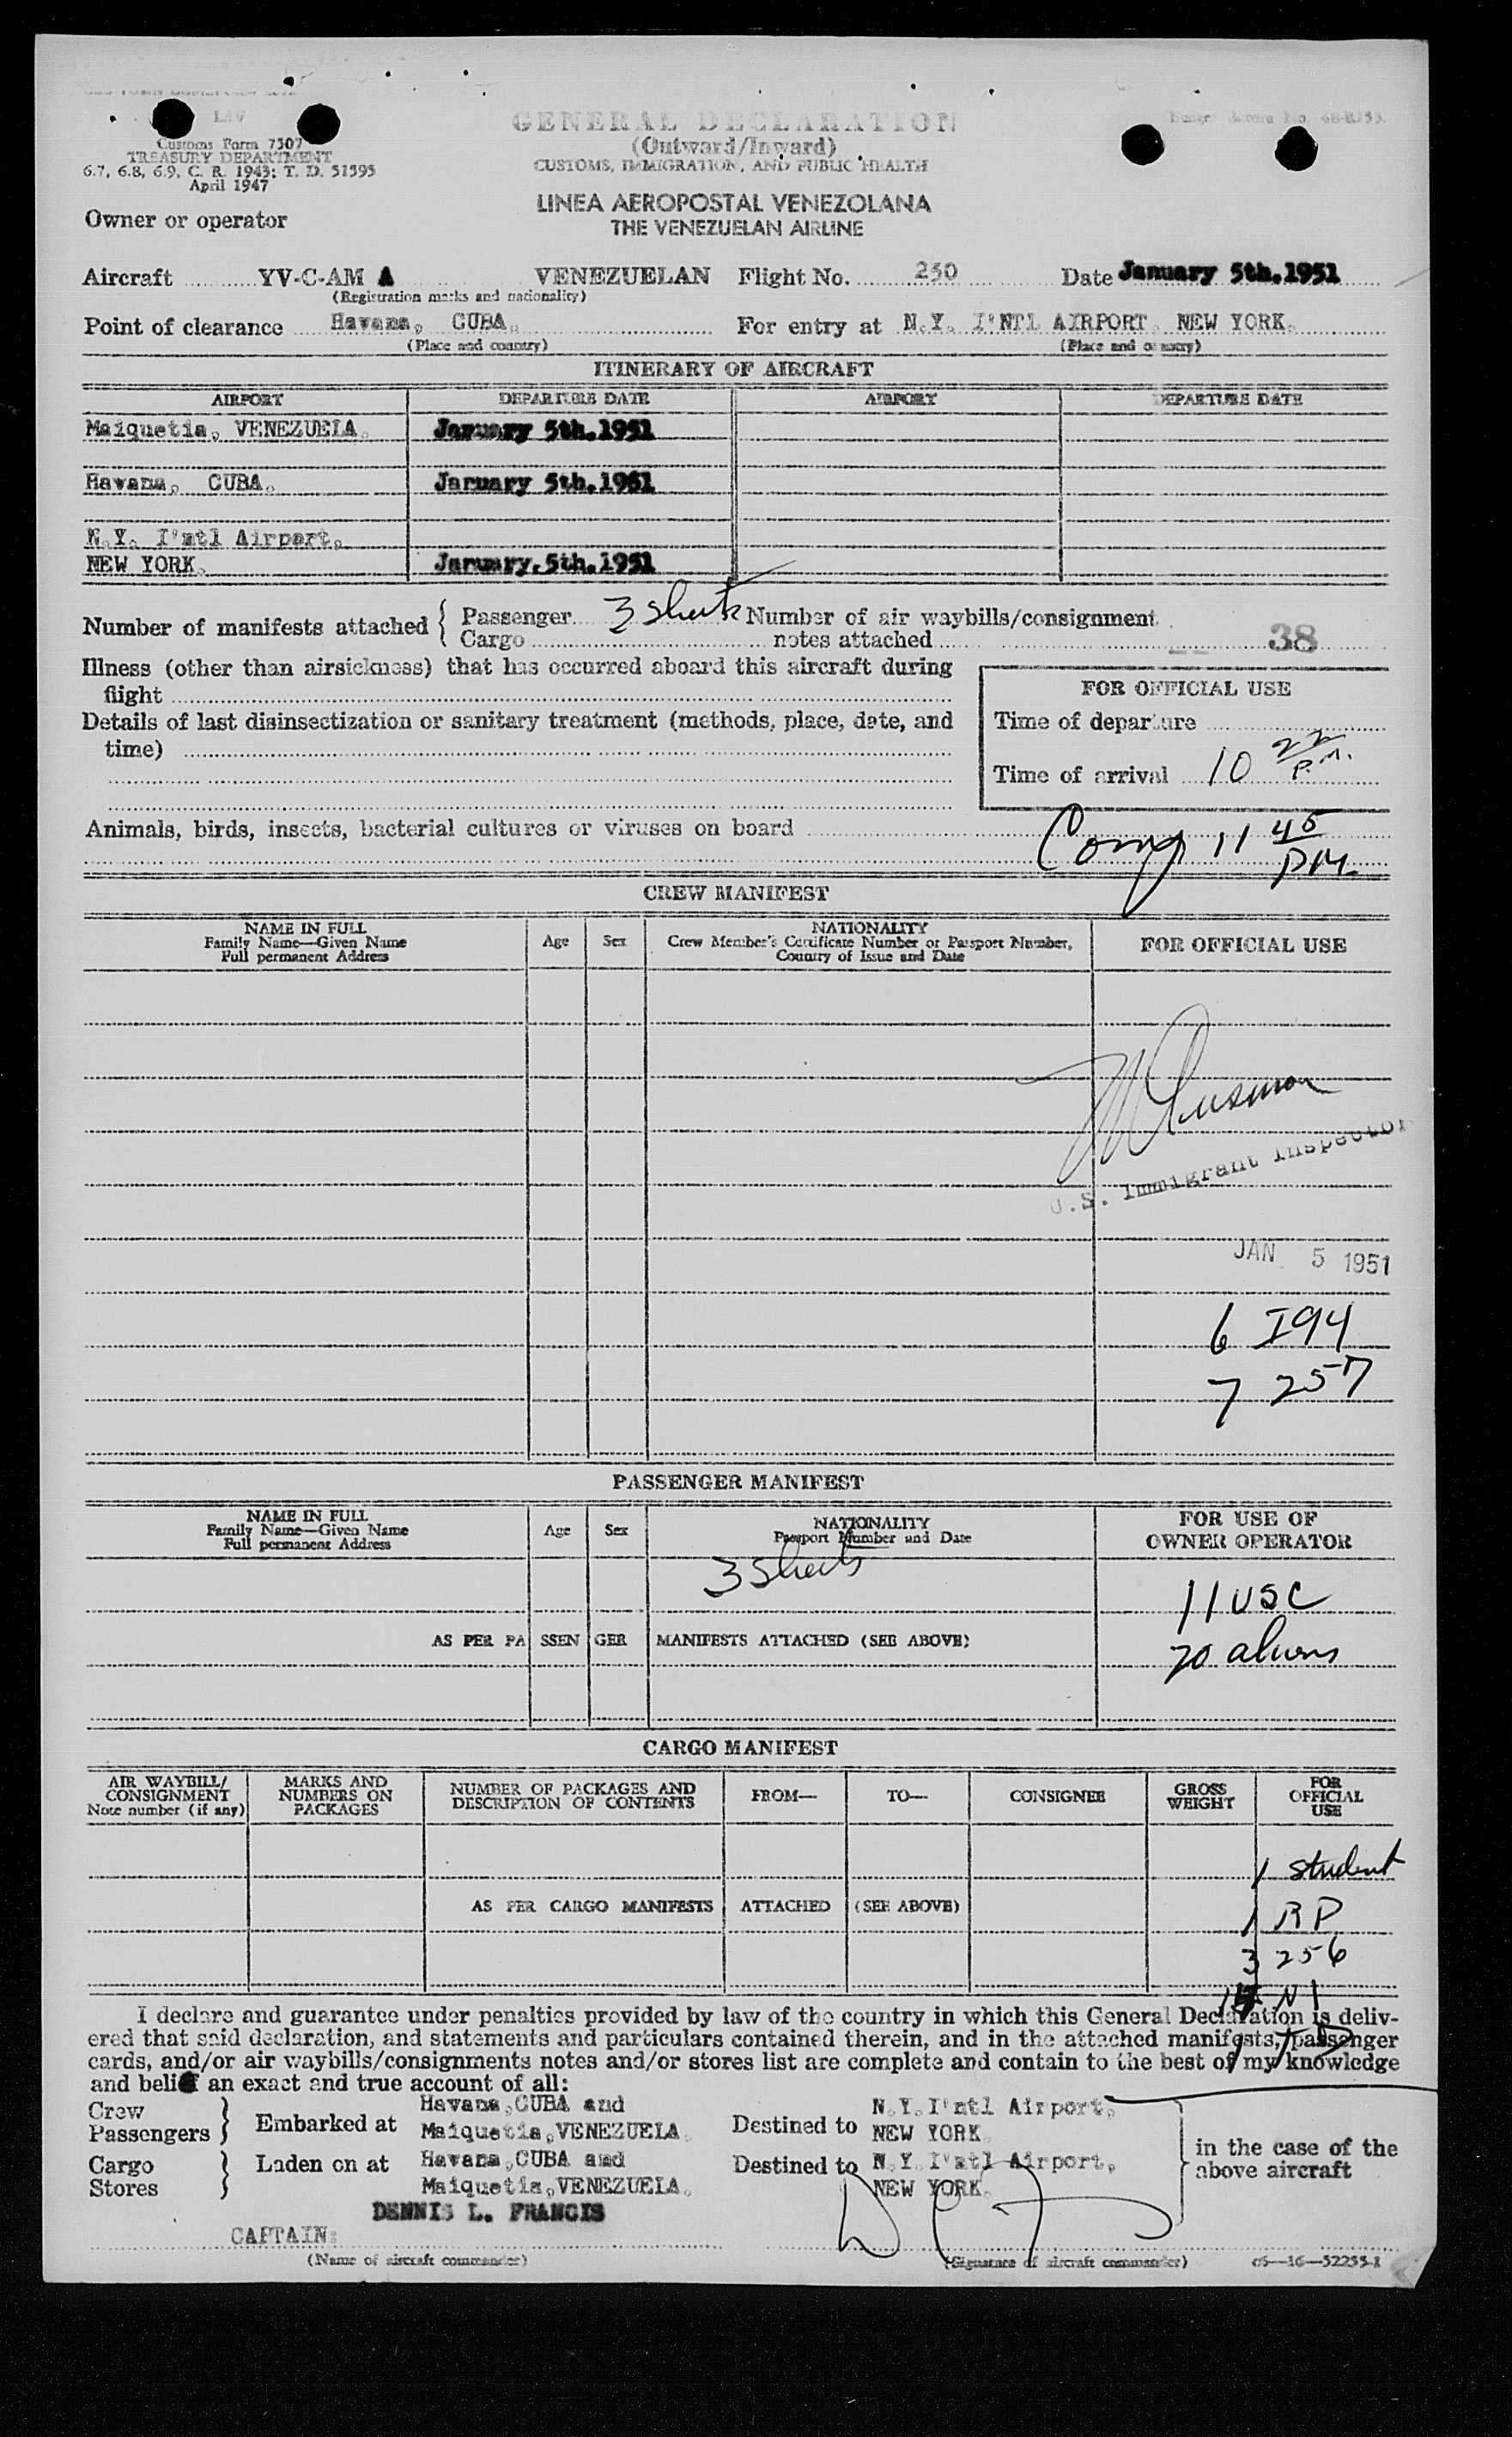 LAV
Customs Form 7507
TREASURY DEPARTMENT
6.7, 6.8, 6.9, C. R. 1943; T. D. 51595
April 1947
GENERAL DECLARATION
(Outward/Inward)
CUSTOMS, IMMIGRATION, AND PUBLIC HEALTH
LINEA AEROPOSTAL VENEZOLANA
THE VENEZUELAN AIRLINE
Owner or operator
Aircraft YV-C-AM A VENEZUELAN Flight No. 250 Date January 5th.1951
(Registration marks and nationality)
Point of clearance Havana, CUBA. For entry at N.Y. I'NTL AIRPORT, NEW YORK.
(Place and country) (Place and country)
ITINERARY OF AIRCRAFT
AIRPORT DEPARTURE DATE AIRPORT DEPARTURE DATE
Maiquetia, VENEZUELA. January 5th.1951
Havana, CUBA. January 5th.1951
N.Y. I'ntl Airport,
NEW YORK. January.5th.1951
Number of manifests attached { Passenger 3 sheets Number of air waybills/consignment
Cargo notes attached 38
Illness (other than airsickness) that has occurred aboard this aircraft during
flight
Details of last disinsectization or sanitary treatment (methods, place, date, and
time)
FOR OFFICIAL USE
Time of departure
Time of arrival 10 22 P.M.
Animals, birds, insects, bacterial cultures or viruses on board
Comp 11 45 PM
CREW MANIFEST
NAME IN FULL
Family Name—Given Name
Full permanent Address
Age Sex
NATIONALITY
Crew Member's Certificate Number or Passport Number,
Country of Issue and Date
FOR OFFICIAL USE
U.S. Immigrant Inspector
JAN 5 1951
6 I94
7 257
PASSENGER MANIFEST
NAME IN FULL
Family Name—Given Name
Full permanent Address
Age Sex
NATIONALITY
Passport Number and Date
FOR USE OF
OWNER OPERATOR
3 Sheets
11 USC
AS PER PASSENGER MANIFESTS ATTACHED (SEE ABOVE)
20 aliens
CARGO MANIFEST
AIR WAYBILL/
CONSIGNMENT
Note number (if any)
MARKS AND
NUMBERS ON
PACKAGES
NUMBER OF PACKAGES AND
DESCRIPTION OF CONTENTS
FROM— TO— CONSIGNEE
GROSS
WEIGHT
FOR
OFFICIAL
USE
1 student
AS PER CARGO MANIFESTS ATTACHED (SEE ABOVE)
1 RP
3 256
NI
I declare and guarantee under penalties provided by law of the country in which this General Declaration is deliv-
ered that said declaration, and statements and particulars contained therein, and in the attached manifests, passenger
cards, and/or air waybills/consignments notes and/or stores list are complete and contain to the best of my knowledge
and belief an exact and true account of all:
Crew
Passengers } Embarked at Havana,CUBA and
Maiquetia,VENEZUELA. Destined to N.Y.I'ntl Airport,
NEW YORK.
Cargo
Stores } Laden on at Havana,CUBA and
Maiquetia,VENEZUELA. Destined to N.Y.I'ntl Airport,
NEW YORK.
in the case of the
above aircraft
DENNIS L. FRANCIS
CAPTAIN:
(Name of aircraft commander) (Signature of aircraft commander) c6—16—52255-1